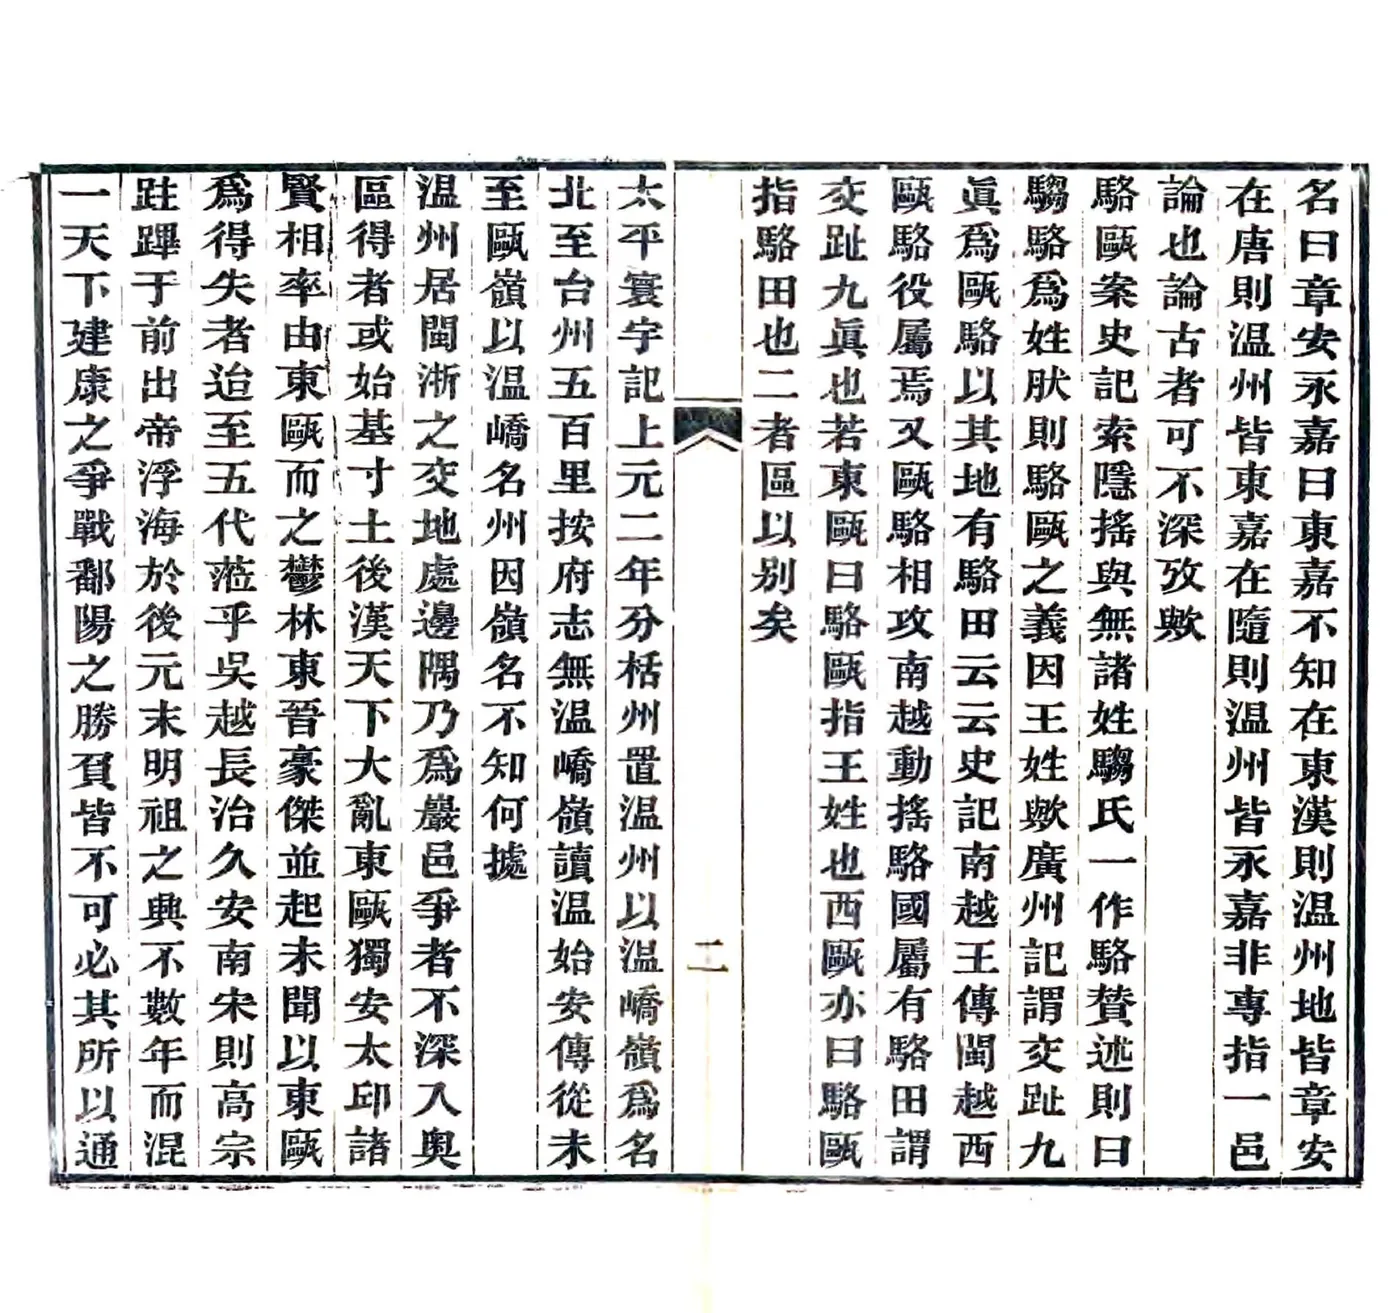 名曰章安永嘉曰東嘉不知在東漢則温州地皆章安
在唐則温州皆東嘉在隨則温州皆永嘉非專指一邑
論也論古者可不深攷歟
駱甌案史記索隱搖與無諸姓騶氏一作駱賛述則曰
騶駱爲姓肰則駱甌之義因王姓歟廣州記謂交趾九
眞爲甌駱以其地有駱田云云史記南越王傳閩越西
甌駱役屬焉又甌駱相攻南越動搖駱國屬有駱田謂
交趾九眞也若東甌曰駱甌指王姓也西甌亦曰駱甌
指駱田也二者區以别矣
二
太平寰宇記上元二年分栝州置温州以温嶠嶺爲名
北至台州五百里按府志無温嶠嶺讀温始安傳從未
至甌嶺以温嶠名州因嶺名不知何據
温州居閩淅之交地處邊隅乃爲巖邑爭者不深入奥
區得者或始基寸土後漢天下大亂東甌獨安太邱諸
賢相率由東甌而之鬱林東晉豪傑並起未聞以東甌
爲得失者迨至五代蒞乎吳越長治久安南宋則高宗
跓蹕于前出帝浮海於後元末明祖之興不數年而混
一天下建康之爭戰鄱陽之勝負皆不可必其所以通